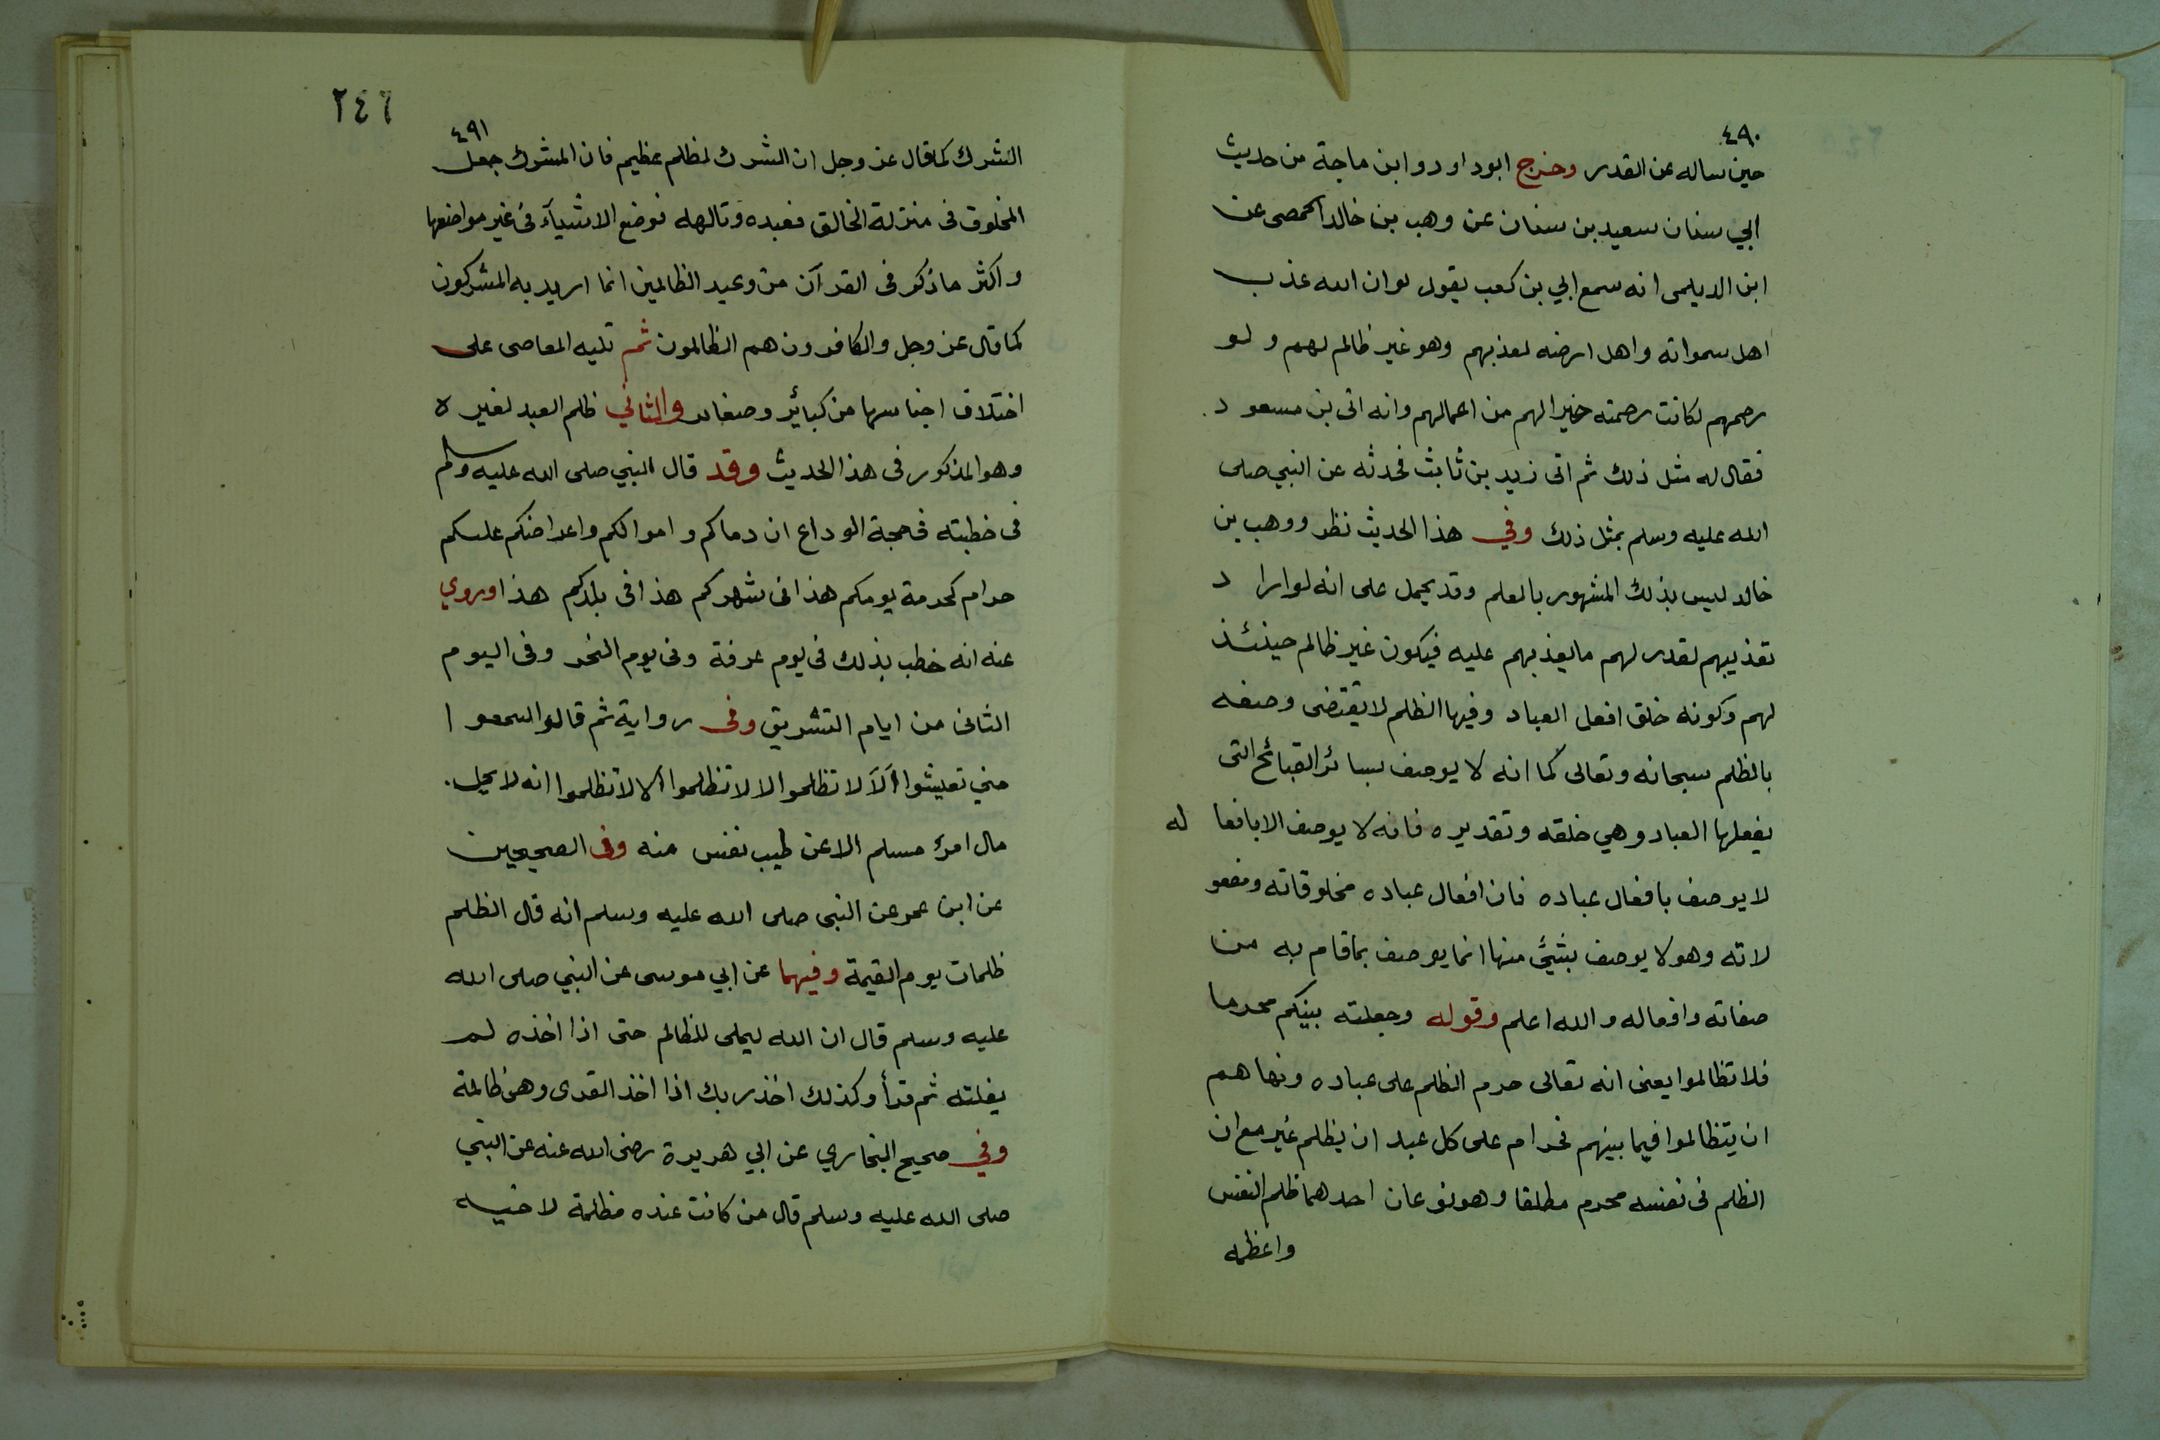 ٤٩٠
حين ساله عن القدر وخرج ابوداود وابن ماجة من حديث
ابي سنان سعيد بن سنان عن وهب بن خالد الحمصى عن
ابن الديلمى انه سمع ابي بن كعب يقول لو ان الله عذب
اهل سمواته واهل ارضه لعذبهم وهو غير ظالم لهم ولو
رحمهم لكانت رحمته خيرا لهم من اعمالهم وانه اتى بن مسعود
فقال له مثل ذلك ثم اتى زيد بن ثابث فحدثه عن النبي صلى
الله عليه وسلم بمثل ذلك وفي هذا الحديث نظر ووهب بن
خالد ليس بذلك المشهور بالعلم وقد يحمل على انه لو اراد
تعذيبهم لقدر لهم ما يعذبهم عليه فيكون غير ظالم حينئذ
لهم وكونه خلق افعل العباد وفيها الظلم لا يقتضى وصفه
بالظلم سبحانه وتعالى كما انه لا يوصف بسائر القبائح التى
يفعلها العباد وهي خلقه وتقديره فانه لا يوصف الا بافعا له
لا يوصف بافعال عباده فان افعال عباده مخلوقاته ومفعو
لاته وهو لا يوصف بشيئ منها انما يوصف بما قام به من
صفاته وافعاله والله اعلم وقوله وجعلته بينكم محرما
فلا تظالموا يعنى انه تعالى حرم الظلم على عباده ونهاهم
ان يتظالموا فيما بينهم فحرام على كل عبد ان يظلم غير مع ان
الظلم فى نفسه محرم مطلقا وهو نوعان احدهما ظلم النفس
واعظمه
٢٤٦
٤٩١
الشرك كما قال عز وجل ان الشرك لظلم عظيم فان المشرك جعل
المخلوق فى منزلة الخالق فعبده وتالهه فوضع الاشيآء فى غير مواضعها
واكثر ما ذكر فى القرآن من وعيد الظالمين انما اريد به المشركون
كما قال عز وجل والكافرون هم الظالمون ثم تليه المعاصى على
اختلاف اجناسها من كبائر وصغار والثاني ظلم العبد لغيره
وهو المذكور فى هذا الحديث وقد قال النبي صلى الله عليه وسلم
فى خطبته فى حجة الوداع ان دماكم واموالكم واعراضكم عليكم
حرام كحرمة يومكم هذا فى شهركم هذا فى بلدكم هذا وروي
عنه انه خطب بذلك فى يوم عرفة وفى يوم النحر وفى اليوم
الثانى من ايام التشريق وفى رواية ثم قال اسمعوا
مني تعيشوا ألا لا تظلموا الا لا تظلموا الا لا تظلموا انه لا يحل
مال امرئ مسلم الا عن طيب نفس منه وفى الصحيحين
عن ابن عمر عن النبى صلى الله عليه وسلم انه قال الظلم
ظلمات يوم القيمة وفيهما عن ابي موسى عن النبي صلى الله
عليه وسلم قال ان الله ليملى للظالم حتى اذا اخذه لم
يفلته ثم قرأ وكذلك اخذ ربك اذا اخذ القرى وهى ظالمة
وفي صحيح البخاري عن ابي هريرة رضى الله عنه عن النبي
صلى الله عليه وسلم قال من كانت عنده مظلمة لاخيه